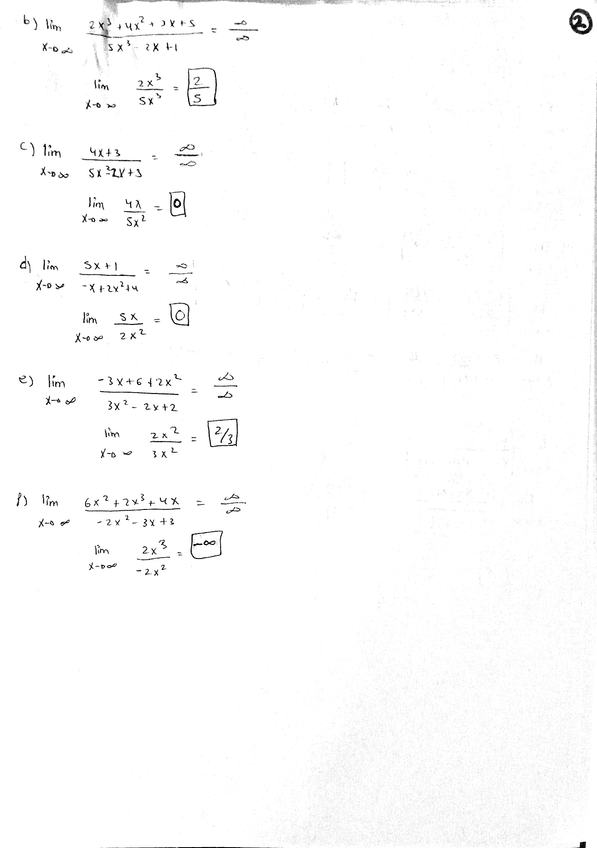 2
b) lim x→∞ (2x³ + 4x² + 3x + 5)/(5x³ - 2x + 1) = ∞/∞
lim x→∞ 2x³/5x³ = 2/5
c) lim x→∞ (4x+3)/(5x²-2x+3) = ∞/∞
lim x→∞ 4x/5x² = 0
d) lim x→∞ (5x+1)/(-x+2x²+4) = ∞/∞
lim x→∞ 5x/2x² = 0
e) lim x→∞ (-3x+6+2x²)/(3x²-2x+2) = ∞/∞
lim x→∞ 2x²/3x² = 2/3
f) lim x→∞ (6x²+2x³+4x)/(-2x²-3x+3) = ∞/∞
lim x→∞ 2x³/-2x² = -∞